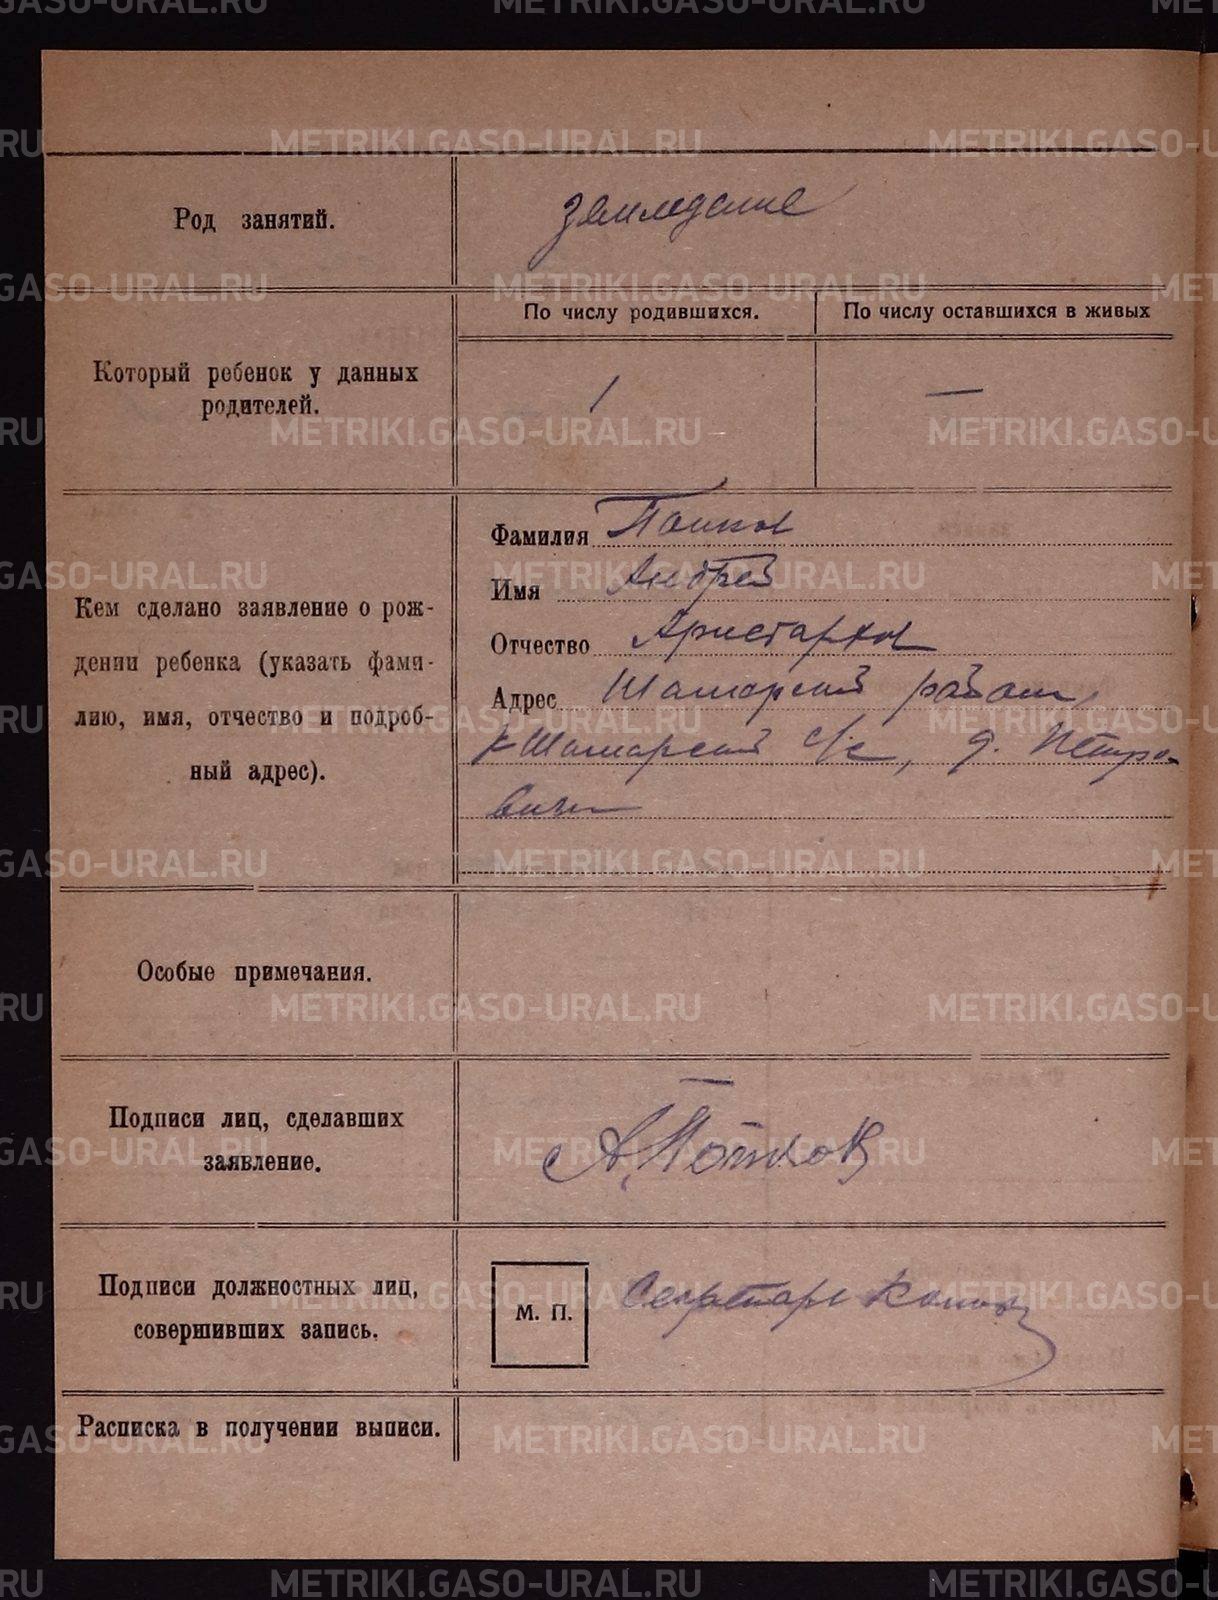 METRIKI.GASO-URAL.RU
Род занятий.
земледелие
Который ребенок у данных
родителей.
По числу родившихся.
По числу оставшихся в живых
1
—
Кем сделано заявление о рож-
дении ребенка (указать фами-
лию, имя, отчество и подроб-
ный адрес).
Фамилия
Имя Андрей
Отчество Аристархов
Адрес Шамарский район,
Шамарский с/с, д. Петро-
Особые примечания.
Подписи лиц, сделавших
заявление.
А.
Подписи должностных лиц,
совершивших запись.
М. П.
Секретарь
Расписка в получении выписи.